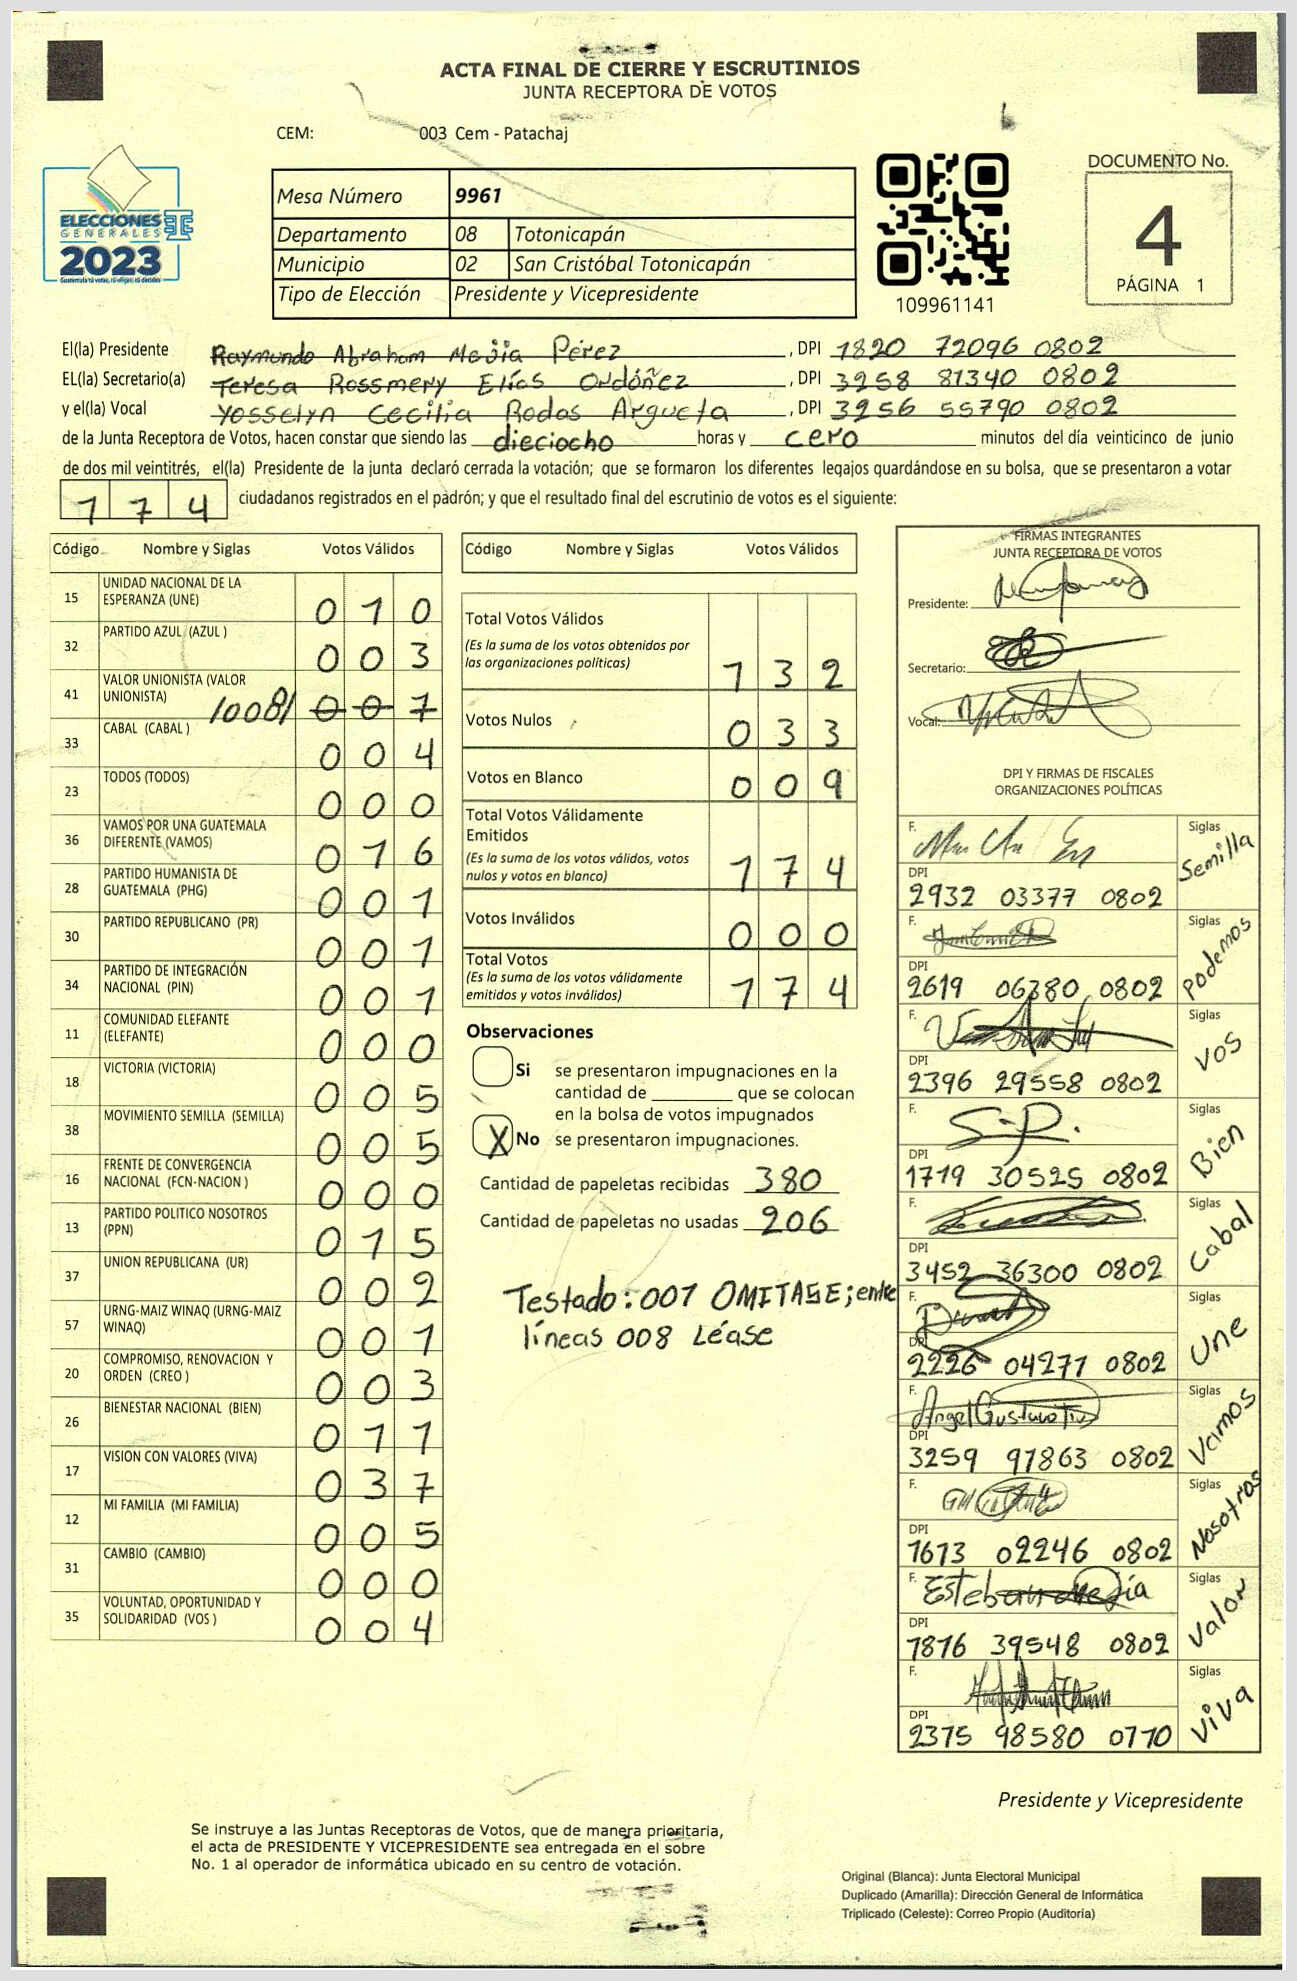 ACTA FINAL DE CIERRE Y ESCRUTINIOS
JUNTA RECEPTORA DE VOTOS
CEM: 003 Cem - Patachaj
ELECCIONES
GENERALES
2023
Mesa Número 9961
Departamento 08 Totonicapán
Municipio 02 San Cristóbal Totonicapán
Tipo de Elección Presidente y Vicepresidente
109961141
DOCUMENTO No.
4
PÁGINA 1
El(la) Presidente Raymundo Abraham Mejía Pérez, DPI 1820 72096 0802
EL(la) Secretario(a) Teresa Rossmery Elías Ordóñez, DPI 3258 81340 0802
y el(la) Vocal Yosselyn Cecilia Rodas Argueta, DPI 3256 55790 0802
de la Junta Receptora de Votos, hacen constar que siendo las dieciocho horas y cero minutos del día veinticinco de junio
de dos mil veintitrés, el(la) Presidente de la junta declaró cerrada la votación; que se formaron los diferentes legajos quardándose en su bolsa, que se presentaron a votar
174 ciudadanos registrados en el padrón; y que el resultado final del escrutinio de votos es el siguiente:
Código Nombre y Siglas Votos Válidos
15 UNIDAD NACIONAL DE LA ESPERANZA (UNE) 010
32 PARTIDO AZUL (AZUL ) 003
41 VALOR UNIONISTA (VALOR UNIONISTA) /008/ 007
33 CABAL (CABAL ) 004
23 TODOS (TODOS) 000
36 VAMOS POR UNA GUATEMALA DIFERENTE (VAMOS) 016
28 PARTIDO HUMANISTA DE GUATEMALA (PHG) 001
30 PARTIDO REPUBLICANO (PR) 001
34 PARTIDO DE INTEGRACIÓN NACIONAL (PIN) 001
11 COMUNIDAD ELEFANTE (ELEFANTE) 000
18 VICTORIA (VICTORIA) 005
38 MOVIMIENTO SEMILLA (SEMILLA) 005
16 FRENTE DE CONVERGENCIA NACIONAL (FCN-NACION ) 000
13 PARTIDO POLITICO NOSOTROS (PPN) 015
37 UNION REPUBLICANA (UR) 002
57 URNG-MAIZ WINAQ (URNG-MAIZ WINAQ) 001
20 COMPROMISO, RENOVACION Y ORDEN (CREO ) 003
26 BIENESTAR NACIONAL (BIEN) 011
17 VISION CON VALORES (VIVA) 037
12 MI FAMILIA (MI FAMILIA) 005
31 CAMBIO (CAMBIO) 000
35 VOLUNTAD, OPORTUNIDAD Y SOLIDARIDAD (VOS ) 004
Código Nombre y Siglas Votos Válidos
Total Votos Válidos
(Es la suma de los votos obtenidos por
las organizaciones políticas) 132
Votos Nulos 033
Votos en Blanco 009
Total Votos Válidamente
Emitidos
(Es la suma de los votos válidos, votos
nulos y votos en blanco) 174
Votos Inválidos 000
Total Votos
(Es la suma de los votos válidamente
emitidos y votos inválidos) 174
Observaciones
Si se presentaron impugnaciones en la
cantidad de ________ que se colocan
en la bolsa de votos impugnados
X No se presentaron impugnaciones.
Cantidad de papeletas recibidas 380
Cantidad de papeletas no usadas 206
Testado: 007 OMITASE; entre
líneas 008 Léase
FIRMAS INTEGRANTES
JUNTA RECEPTORA DE VOTOS
Presidente:
Secretario:
Vocal:
DPI Y FIRMAS DE FISCALES
ORGANIZACIONES POLÍTICAS
F. Siglas Semilla
DPI 2932 03377 0802
F. Siglas Podemos
DPI 2619 06380 0802
F. Siglas VOS
DPI 2396 29558 0802
F. S.P. Siglas Bien
DPI 1719 30525 0802
F. Siglas Cabal
DPI 3452 36300 0802
F. Siglas Une
DPI 2226 04271 0802
F. Angel Gustavo Siglas Vamos
DPI 3259 97863 0802
F. Siglas Nosotros
DPI 1673 02246 0802
F. Esteban Mejía Siglas Valor
DPI 1816 39548 0802
F. Siglas Viva
DPI 2375 98580 0770
Presidente y Vicepresidente
Se instruye a las Juntas Receptoras de Votos, que de manera prioritaria,
el acta de PRESIDENTE Y VICEPRESIDENTE sea entregada en el sobre
No. 1 al operador de informática ubicado en su centro de votación.
Original (Blanca): Junta Electoral Municipal
Duplicado (Amarilla): Dirección General de Informática
Triplicado (Celeste): Correo Propio (Auditoría)